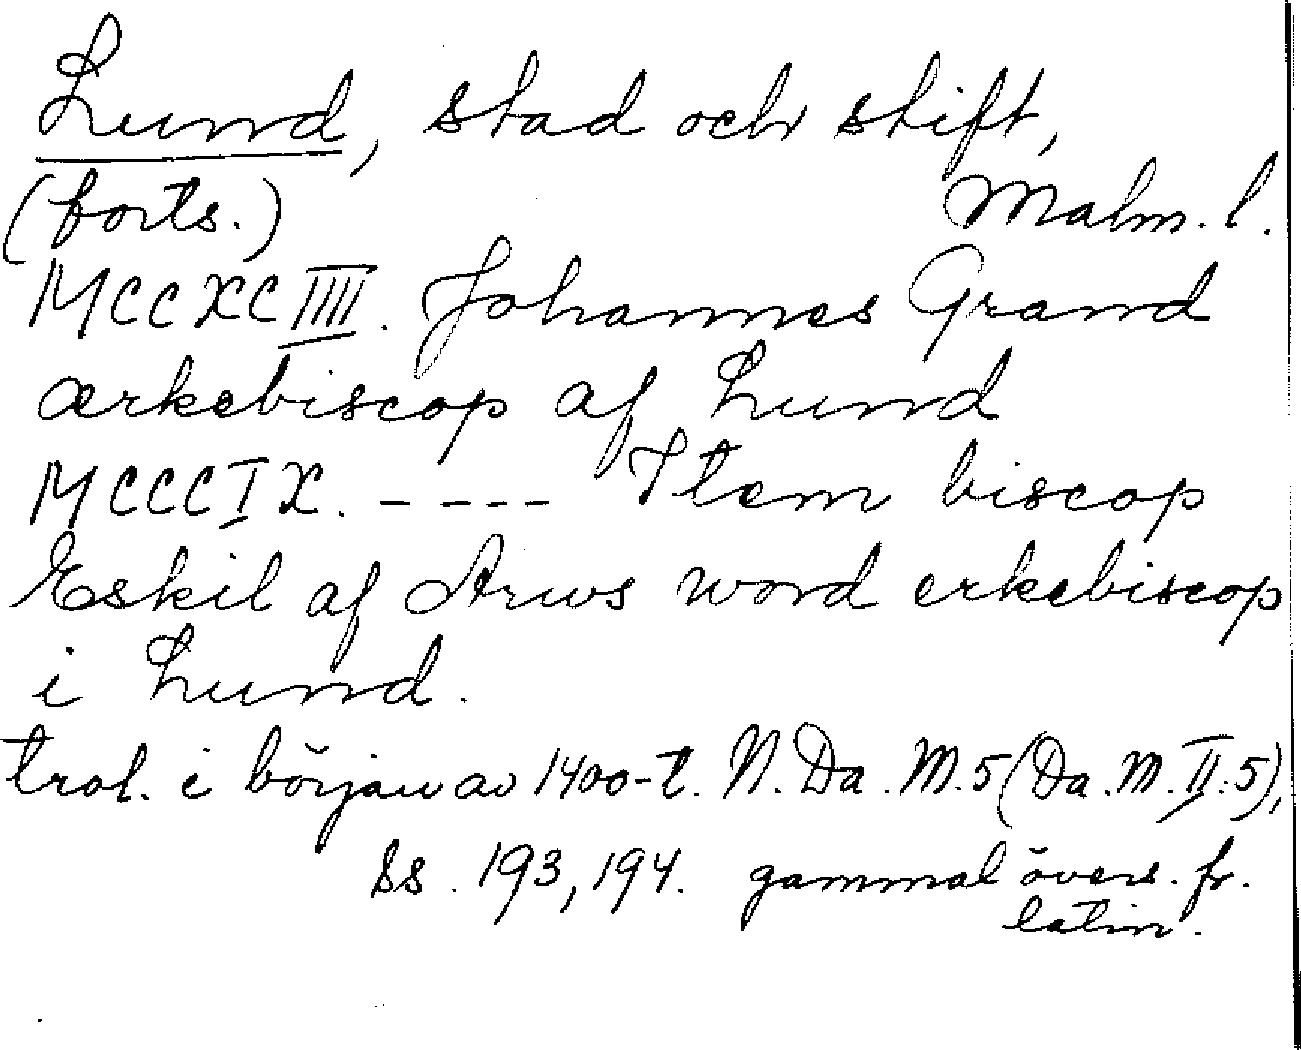 Lund, stad och stift,
(forts.) Malm. l.
MCCXCIIII. Johannes Grand
ærkebiscop af Lund
MCCCIX. - - - - Item biscop
Eskil af Arws word erkebiscop
i Lund.
trol. i början av 1400-t. N. Da. M. 5 (Da. M. II:5),
ss. 193, 194. gammal övers. fr.
latin.